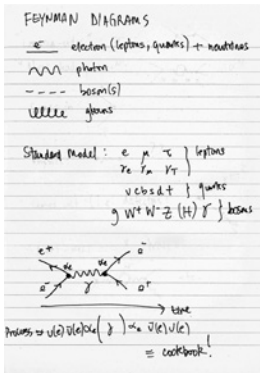 FEYNMAN DIAGRAMS
e⁻ electron (leptons, quarks) + neutrinos
photon
boson(s)
gluons
Standard Model: e μ τ } leptons
νe νμ ντ
u c b s d t } quarks
g W+ W- Z (H) γ } bosons
e+ αe αe e-
e- γ e+
time
Process = αe ( γ ) αe
= cookbook!